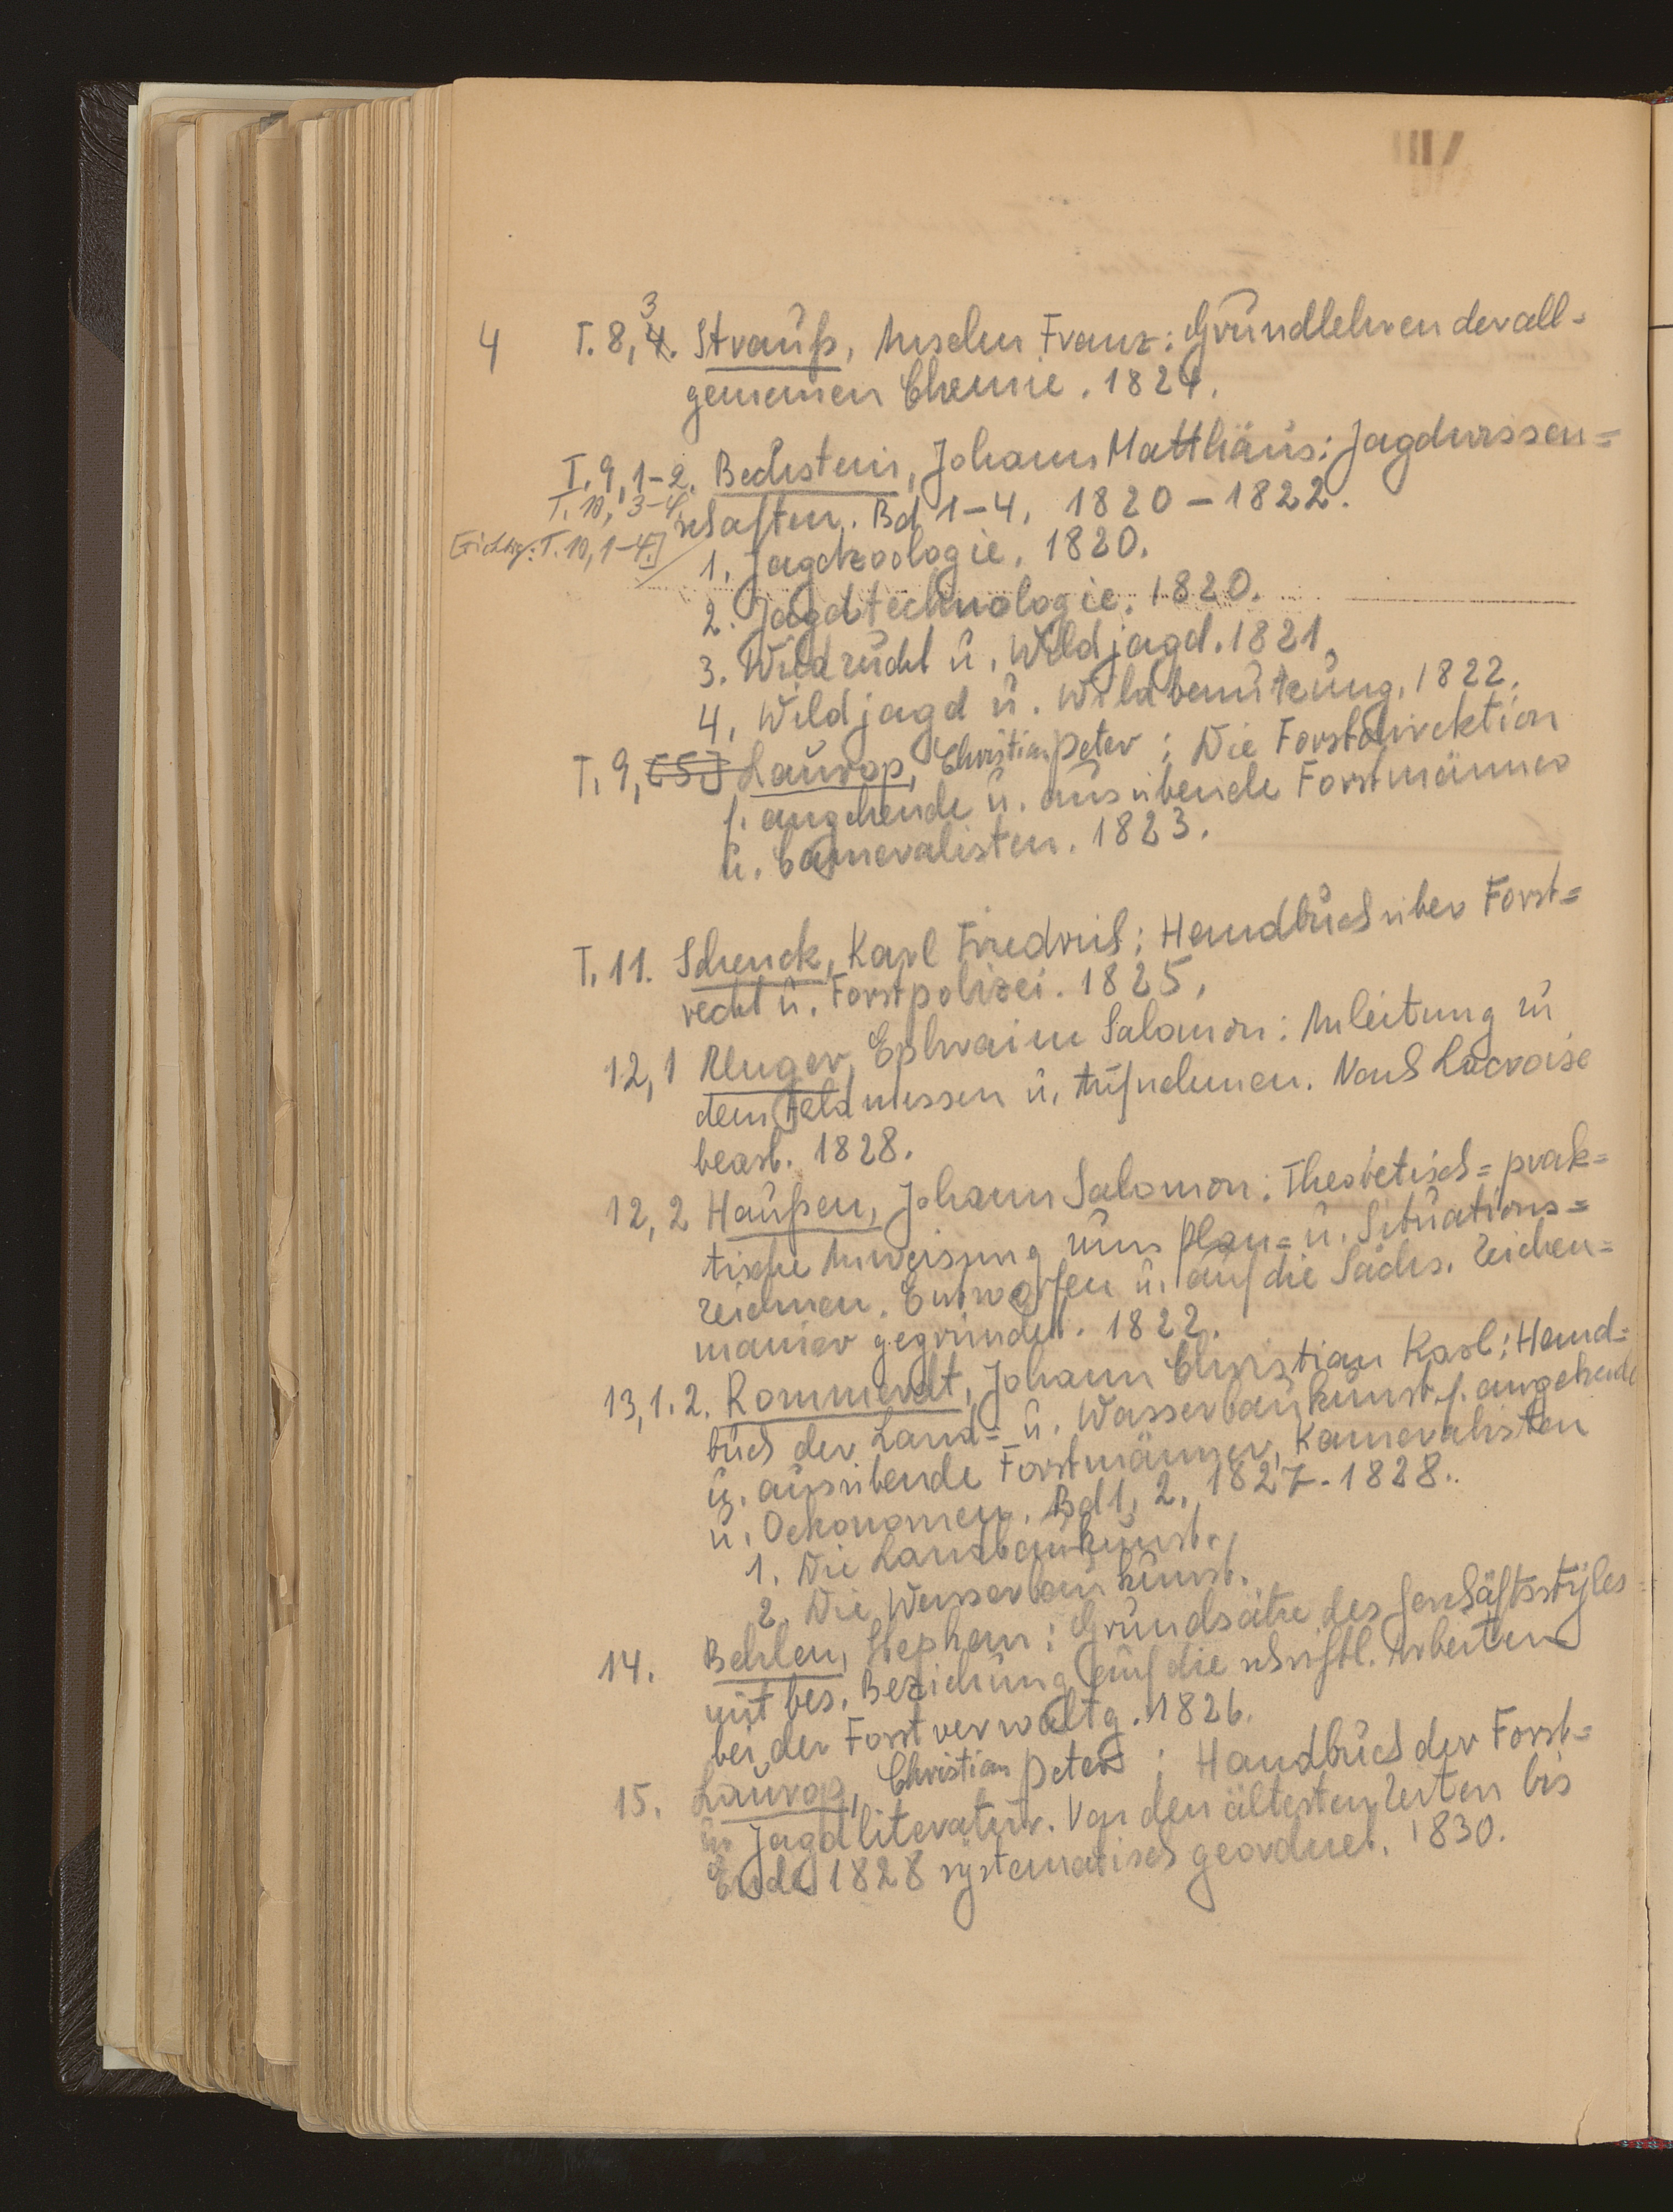 4 T. 8, 3 4. Strauß, Anselm Franz: Grundlehren der all=
gemeinen Chemie. 1824.
T. 9, 1-2. Bechstein, Johann Matthäus: Jagdwissen=
T. 10, 3-4. schaften. Bd 1-4. 1820-1822.
[richtig: T. 10, 1-4.] 1. Jagdzoologie. 1820.
2. Jagdtechnologie. 1820.
3. Wildzucht u. Wildjagd. 1821.
4. Wildjagd u. Wildbenutzung. 1822.
T. 9, [5] Laurop, Christian Peter: Die Forstdirektion
f. angehende u. ausübende Forstmänner
u. Cameralisten. 1823.
T. 11. Schenck, Karl Friedrich: Handbuch über Forst=
recht u. Forstpolizei. 1825.
12,1 Unger, Ephraim Salomon: Anleitung zu
dem Feldmessen u. Aufnehmen. Nach Lacroise
bearb. 1828.
12,2 Haußen, Johann Salomon: Theoretisch=prak=
tische Anweisung zum Plan= u. Situations=
zeichnen. Entworfen u. auf die Sächs. Zeichen=
manier gegründet. 1822.
13,1.2. Rommerdt, Johann Christian Karl: Hand=
buch der Land= u. Wasserbaukunst f. angehende
u. ausübende Forstmänner, Kameralisten
u. Oekonomen. Bd 1. 2. 1827-1828.
1. Die Landbaukunst.
2. Die Wasserbaukunst.
14. Behlen, Stephan: Grundsätze des Geschäftsstyles
mit bes. Beziehung auf die schriftl. Arbeiten
bei der Forstverwaltg. 1826.
15. Laurop, Christian Peter: Handbuch der Forst=
u. Jagdliteratur. Von den ältesten Zeiten bis
Ende 1828 systematisch geordnet. 1830.